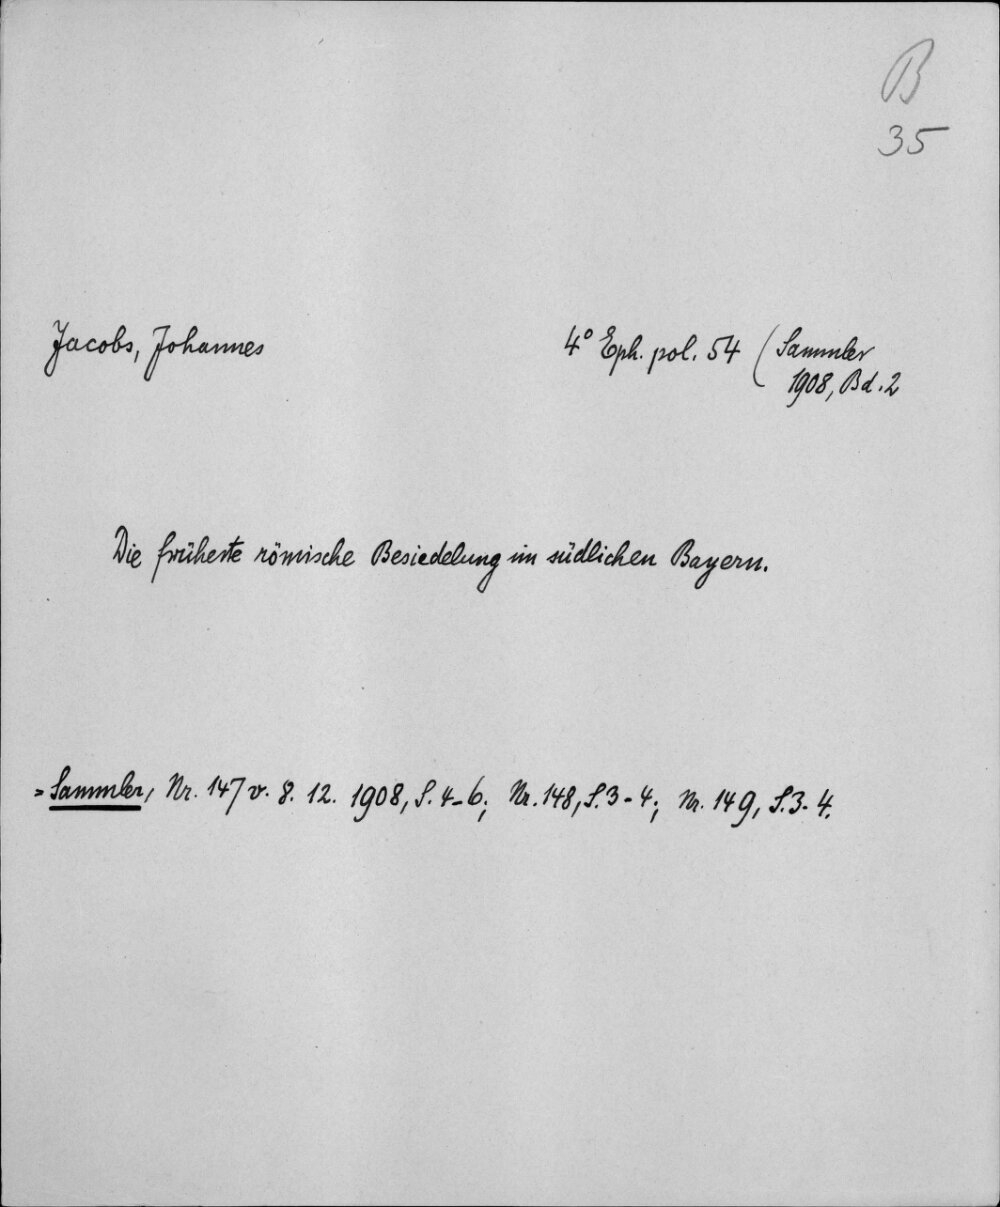 B
35
Jacobs, Johannes
4° Eph. pol. 54 (Sammler
1908, Bd. 2
Die früheste römische Besiedelung im südlichen Bayern.
= Sammler, Nr. 147 v. 8. 12. 1908, S. 4-6; Nr. 148, S. 3-4; Nr. 149, S. 3-4.